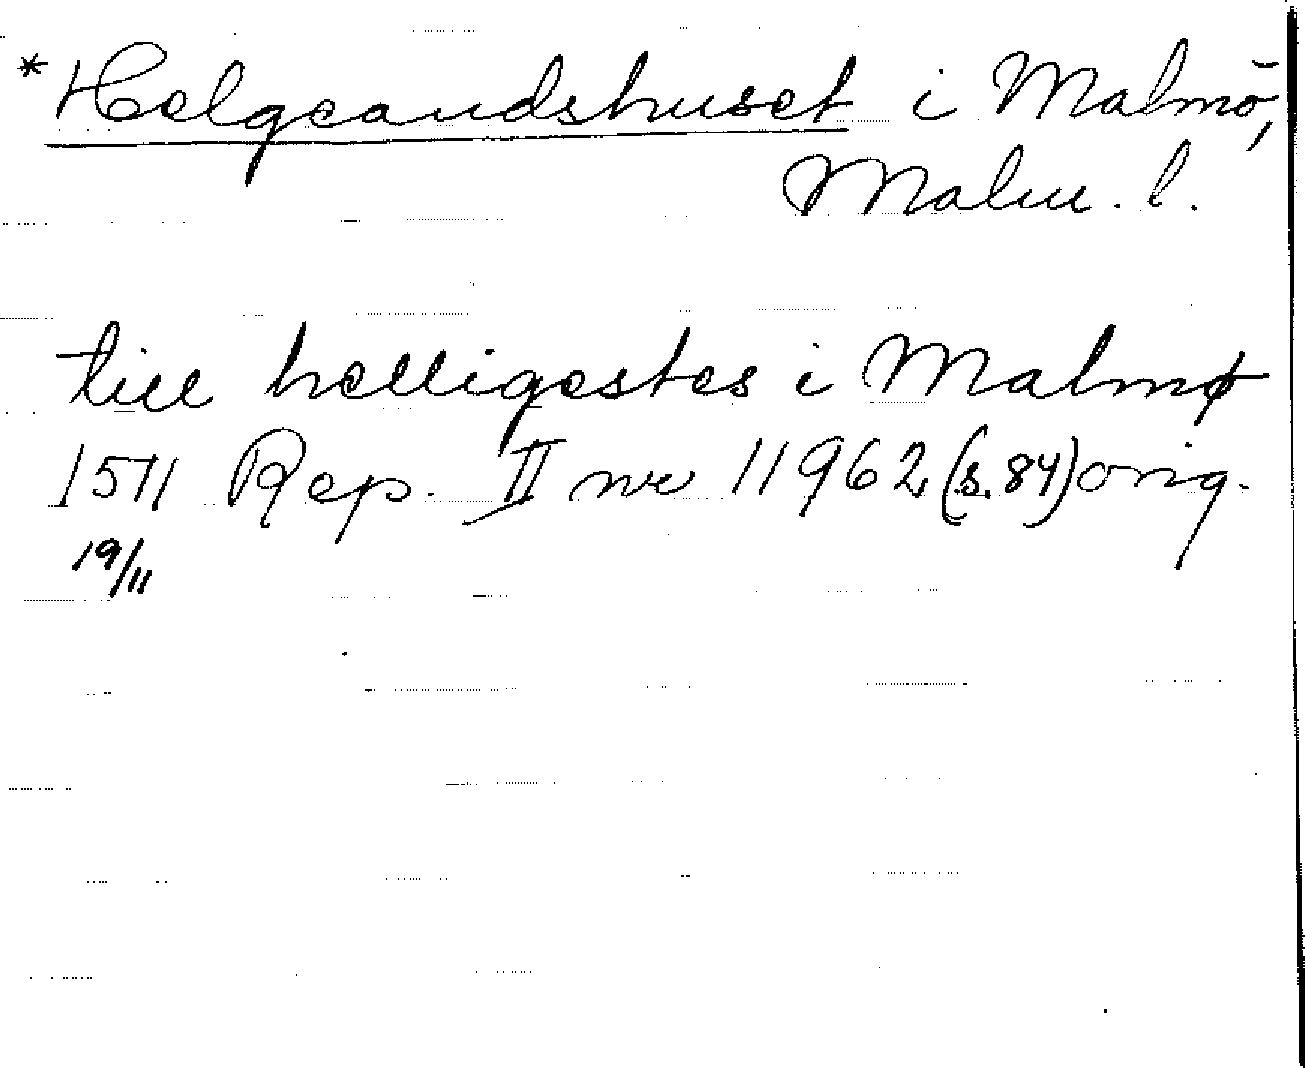 *Helgeandshuset i Malmö,
Malm. l.
till helligestes i Malmø
1511 Rep. II nr 11962 (s. 84) orig.
19/11